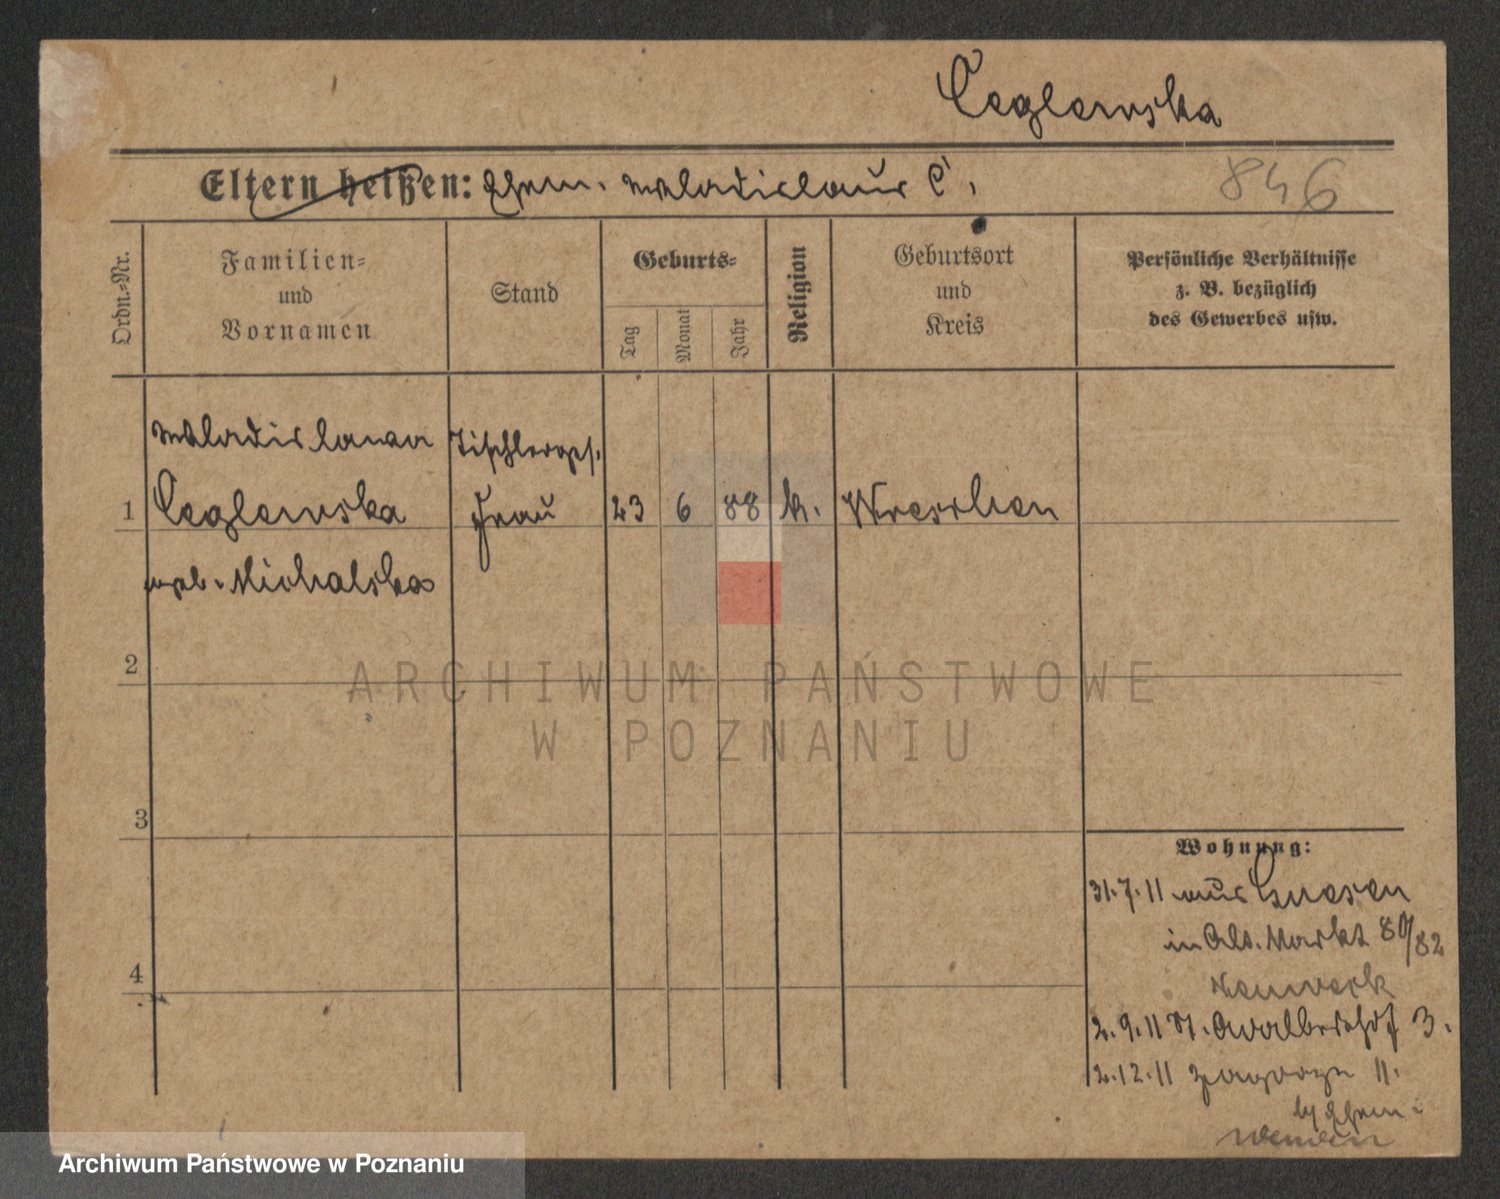 Ceglewska
Eltern heißen: Ehem. Wladislaus C.
846
Ordn.-Nr.
Familien-
und
Vornamen
Stand
Geburts-
Tag
Monat
Jahr
Religion
Geburtsort
und
Kreis
Persönliche Verhältnisse
z. B. bezüglich
des Gewerbes usw.
Wladislawa
Tischlerges.
1 Ceglewska Frau 23 6 88 k. Wreschen
geb. Michalska
2
ARCHIWUM PAŃSTWOWE
W POZNANIU
3
4
Wohnung:
31.7.11 aus Gnesen
in Alt. Markt 80/82
2.9.11 St. Adalbertshof 3.
2.12.11 Zagorze 11.
Ehem.
Archiwum Państwowe w Poznaniu